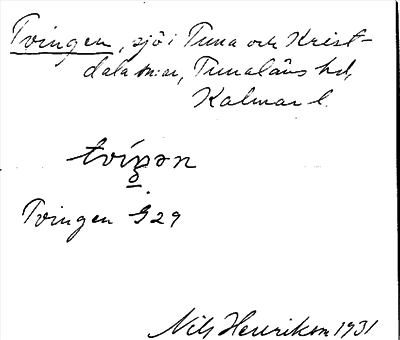 Tvingen, sjö i Tuna och Krist-
dala snar, Tunaläns hd,
Kalmar l.
Tvingen G29
Nils Henrikson 1931